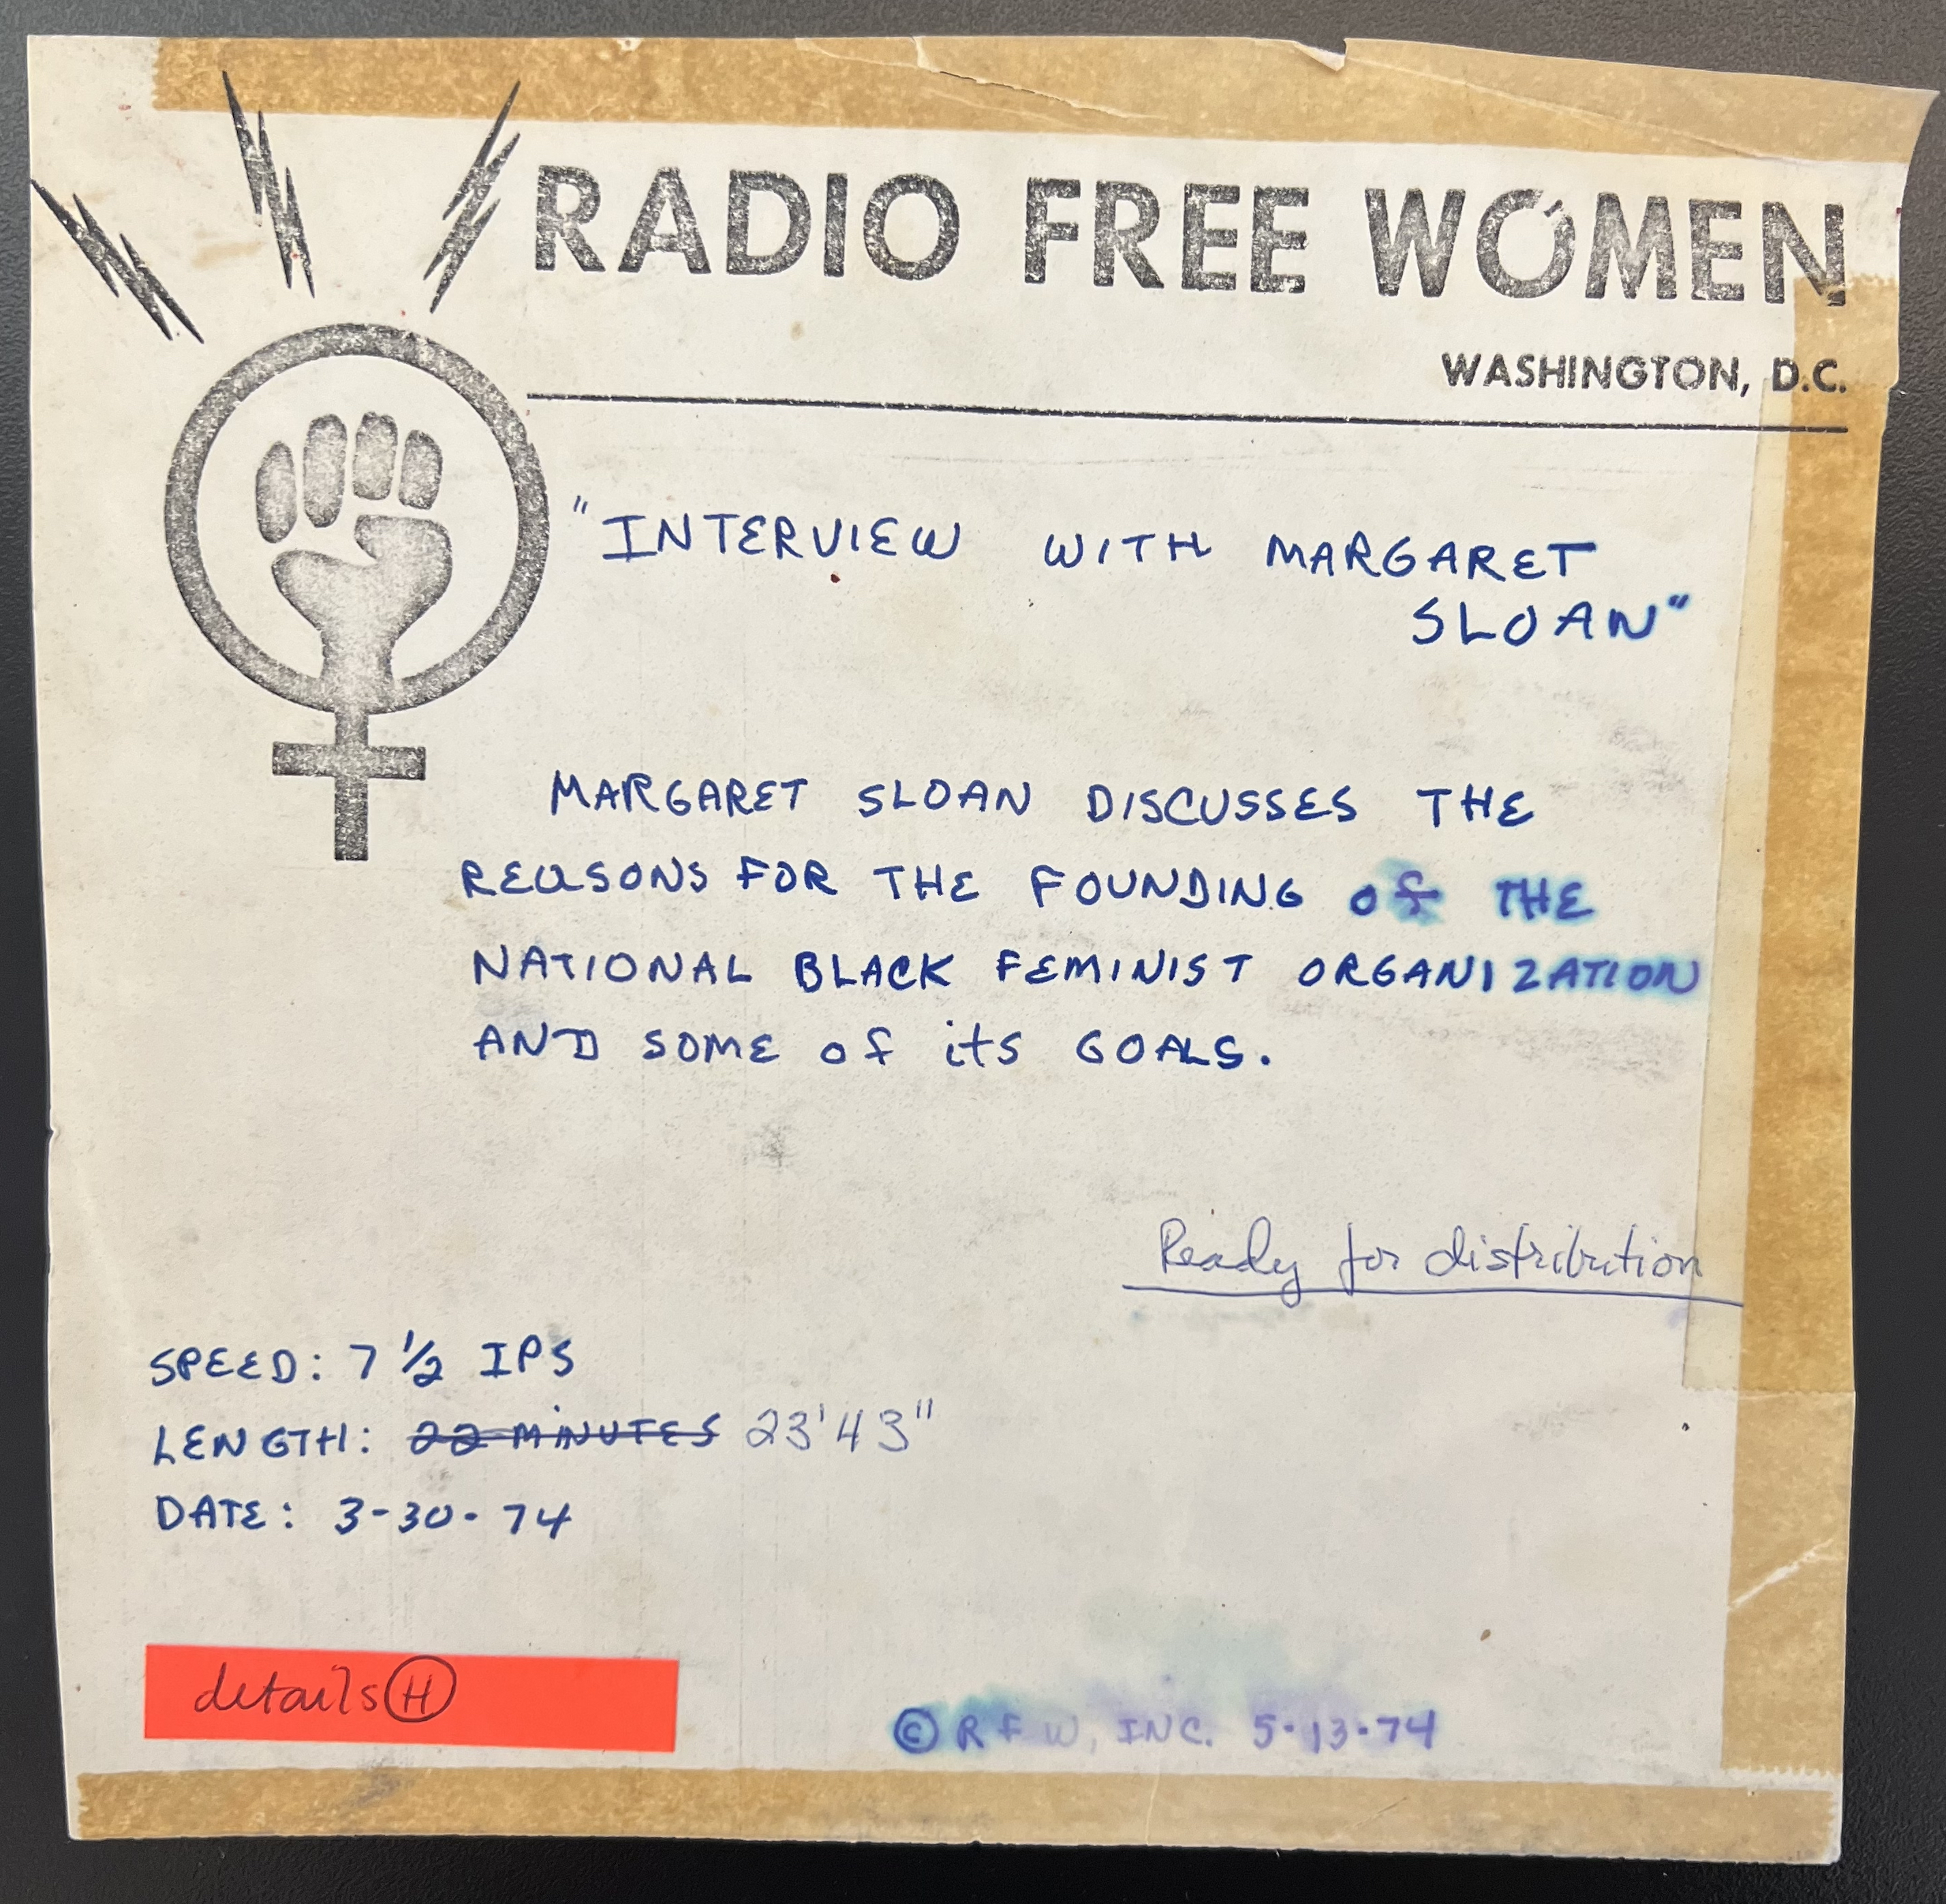 RADIO FREE WOMEN
WASHINGTON, D.C.
"INTERVIEW WITH MARGARET
SLOAN"
MARGARET SLOAN DISCUSSES THE
REASONS FOR THE FOUNDING of THE
NATIONAL BLACK FEMINIST ORGANIZATION
AND SOME of its GOALS.
Ready for distribution
SPEED: 7 1/2 IPS
LENGTH: 22 MINUTES 23'43"
DATE: 3-30-74
details H
© RFW, INC. 5-13-74